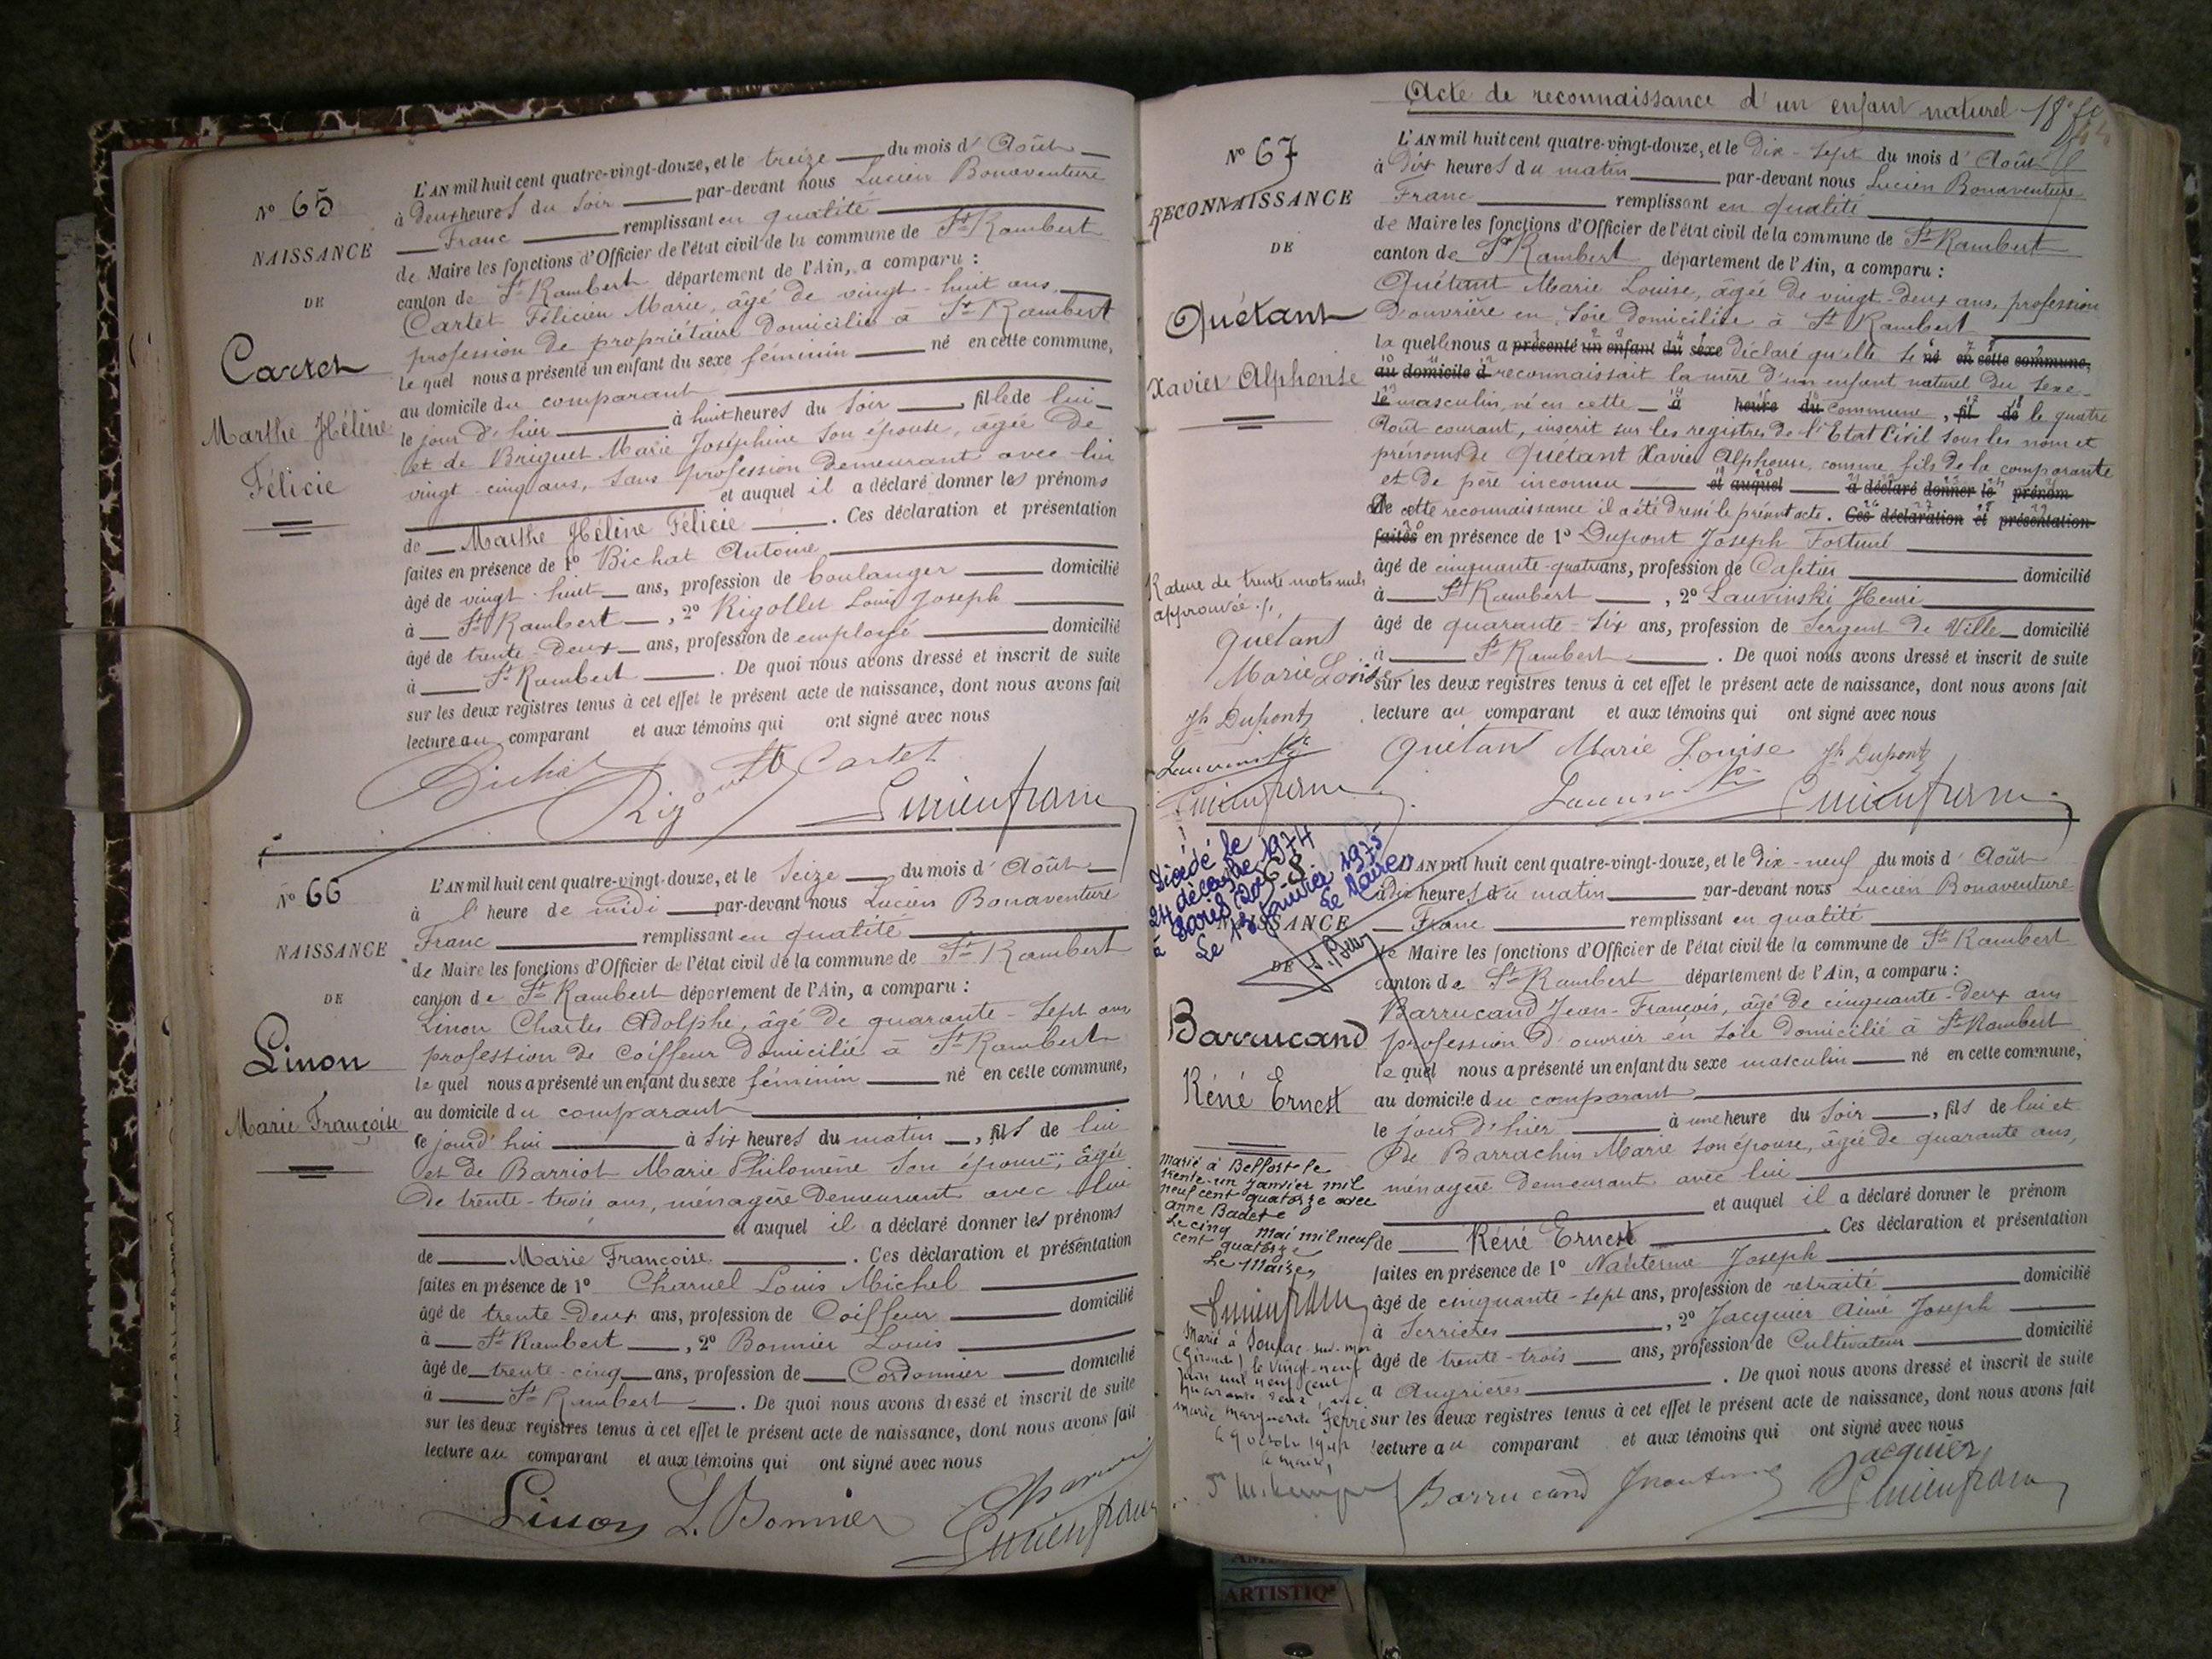 Nº 65
NAISSANCE
DE
Cartet
Marthe Hélène
Félicie
L'AN mil huit cent quatre-vingt-douze, et le treize du mois d'Août
à deux heures du soir par-devant nous Lucien Bonaventure
Franc remplissant en qualité
de Maire les fonctions d'Officier de l'état civil de la commune de St Rambert
canton de St Rambert département de l'Ain, a comparu :
Cartet Félicien Marie, âgé de vingt-huit ans,
profession de propriétaire domicilié à St Rambert
le quel nous a présenté un enfant du sexe féminin né en cette commune,
au domicile du comparant
le jour d'hier à huit heures du soir, fille de lui
et de Briguet Marie Joséphine son épouse, âgée de
vingt-cinq ans, sans profession demeurant avec lui
et auquel il a déclaré donner les prénoms
de Marthe Hélène Félicie. Ces déclaration et présentation
faites en présence de 1º Bichat Antoine
âgé de vingt-huit ans, profession de boulanger domicilié
à St Rambert, 2º Rigollet Louis Joseph
âgé de trente-deux ans, profession de employé domicilié
à St Rambert. De quoi nous avons dressé et inscrit de suite
sur les deux registres tenus à cet effet le présent acte de naissance, dont nous avons fait
lecture au comparant et aux témoins qui ont signé avec nous
Bichat Cartet
Lucien franc
Nº 66
NAISSANCE
DE
Linon
Marie Françoise
L'AN mil huit cent quatre-vingt-douze, et le seize du mois d'Août
à l'heure de midi par-devant nous Lucien Bonaventure
Franc remplissant en qualité
de Maire les fonctions d'Officier de l'état civil de la commune de St Rambert
canton de St Rambert département de l'Ain, a comparu :
Linon Charles Adolphe, âgé de quarante-sept ans
profession de coiffeur domicilié à St Rambert
le quel nous a présenté un enfant du sexe féminin né en cette commune,
au domicile du comparant
ce jourd'hui à six heures du matin, fils de lui
et de Barriot Marie Philomène son épouse, âgée
de trente-trois ans, ménagère demeurant avec lui
et auquel il a déclaré donner les prénoms
de Marie Françoise. Ces déclaration et présentation
faites en présence de 1º Charuel Louis Michel
âgé de trente-deux ans, profession de Coiffeur domicilié
à St Rambert, 2º Bonnier Louis
âgé de trente-cinq ans, profession de Cordonnier domicilié
à St Rambert. De quoi nous avons dressé et inscrit de suite
sur les deux registres tenus à cet effet le présent acte de naissance, dont nous avons fait
lecture au comparant et aux témoins qui ont signé avec nous
Linon L. Bonnier
Lucien franc
Acte de reconnaissance d'un enfant naturel
Nº 67
RECONNAISSANCE
DE
Quétant
Xavier Alphonse
L'AN mil huit cent quatre-vingt-douze, et le dix-sept du mois d'Août
à dix heures du matin par-devant nous Lucien Bonaventure
Franc remplissant en qualité
de Maire les fonctions d'Officier de l'état civil de la commune de St Rambert
canton de St Rambert département de l'Ain, a comparu :
Quétant Marie Louise, âgée de vingt-deux ans, profession
d'ouvrière en soie domiciliée à St Rambert
la quelle nous a présenté un enfant du sexe déclaré qu'elle se né en cette commune,
au domicile d reconnaissait la mère d'un enfant naturel du sexe
le masculin, né en cette à heure du commune, fil de le quatre
Août courant, inscrit sur les registres de l'Etat Civil sous les nom et
prénoms de Quétant Xavier Alphonse, comme fils de la comparante
et de père inconnu et auquel a déclaré donner le prénom
De cette reconnaissance il a été dressé le présent acte. Ces déclaration et présentation
faites en présence de 1º Dupont Joseph Fortuné
âgé de cinquante-quatre ans, profession de Cafetier domicilié
à St Rambert, 2º Lauvinski Henri
âgé de quarante-six ans, profession de Sergent de Ville domicilié
à St Rambert. De quoi nous avons dressé et inscrit de suite
sur les deux registres tenus à cet effet le présent acte de naissance, dont nous avons fait
lecture au comparant et aux témoins qui ont signé avec nous
Quétant Marie Louise Jh Dupont
Lucien franc
Rature de trente mots nuls
approuvée
Quétant
Marie Louise
Jh Dupont
Lucien franc
Décédé le
24 décembre 1974
à Paris
Le 13 Janvier 1975
Le Maire,
68
NAISSANCE
DE
Barrucand
Réné Ernest
L'AN mil huit cent quatre-vingt-douze, et le dix-neuf du mois d'Août
à dix heures du matin par-devant nous Lucien Bonaventure
Franc remplissant en qualité
de Maire les fonctions d'Officier de l'état civil de la commune de St Rambert
canton de St Rambert département de l'Ain, a comparu :
Barrucand Jean-François, âgé de cinquante-deux ans
profession d'ouvrier en soie domicilié à St Rambert
le quel nous a présenté un enfant du sexe masculin né en cette commune,
au domicile du comparant
le jour d'hier à une heure du soir, fils de lui et
de Barrachin Marie son épouse, âgée de quarante ans,
ménagère demeurant avec lui
et auquel il a déclaré donner le prénom
de Réné Ernest. Ces déclaration et présentation
faites en présence de 1º Nanterme Joseph
âgé de cinquante-sept ans, profession de retraité domicilié
à Serrières, 2º Jacquier Aimé Joseph
âgé de trente-trois ans, profession de Cultivateur domicilié
à Angrières. De quoi nous avons dressé et inscrit de suite
sur les deux registres tenus à cet effet le présent acte de naissance, dont nous avons fait
lecture au comparant et aux témoins qui ont signé avec nous
Jacquier
Barrucand Lucien franc
Marié à Belfort le
trente-un janvier mil
neuf cent quatorze avec
Anne Badete
Le cinq mai mil neuf
cent quatorze
Le Maire,
Lucien franc
Marié à Soulac-sur-mer
(Gironde) le vingt-neuf
juin mil neuf cent
quarante deux avec
Marie Marguerite Ferré
le 9 octobre 1942
le maire,
ARTISTIQ